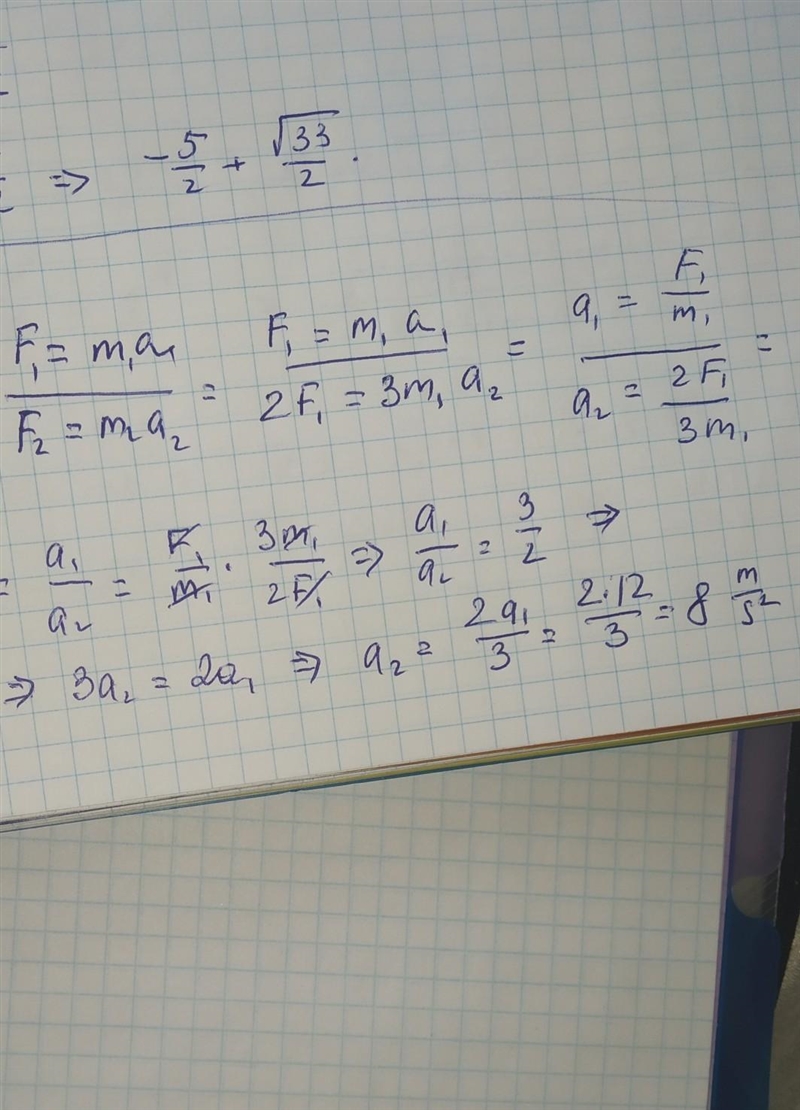 ⇒ -5/2 + √33/2.
F₁ = m₁a₁ / F₂ = m₂a₂ = F₁ = m₁a₁ / 2F₁ = 3m₁a₂ = a₁ = F₁/m₁ / a₂ = 2F₁/3m₁ =
= a₁/a₂ = F₁/m₁ · 3m₁/2F₁ ⇒ a₁/a₂ = 3/2 ⇒
⇒ 3a₂ = 2a₁ ⇒ a₂ = 2a₁/3 = 2·12/3 = 8 m/s²